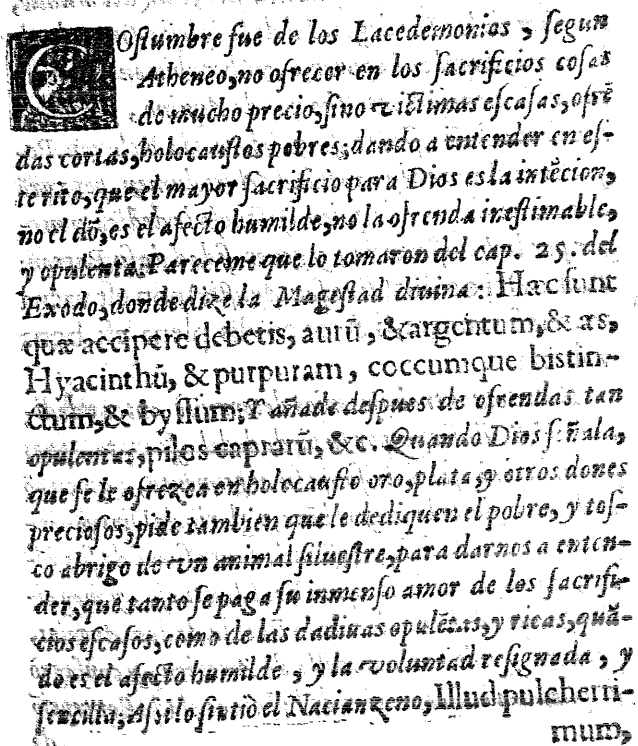 COstumbre fue de los Lacedemonios, segun
Atheneo, no ofrecer en los sacrificios cosas
de mucho precio, sino victimas escasas, ofrē
das cortas, holocaustos pobres; dando a entender en es-
te rito, que el mayor sacrificio para Dios es la intēcion,
no el dō, es el afecto humilde, no la ofrenda inestimable,
y opulenta. Pareceme que lo tomaron del cap. 25. del
Exodo, donde dize la Magestad diuina: Hæc sunt
quæ accipere debetis, aurū, & argentum, & æs,
Hyacinthū, & purpuram, coccumque bistin-
ctum, & byssum; Y añade despues de ofrendas tan
opulentas, pilos caprarū, &c. Quando Dios señala,
que se le ofrezca en holocausto oro, plata, y otros dones
preciosos, pide tambien que le dediquen el pobre, y tos-
co abrigo de vn animal siluestre, para darnos a enten-
der, que tanto se paga su inmenso amor de los sacrifi-
cios escasos, como de las dadiuas opulētas, y ricas, quā-
do es el afecto humilde, y la voluntad resignada, y
sencilla; Assi lo sintiò el Nacianzeno, Illud pulcherri-
mum,